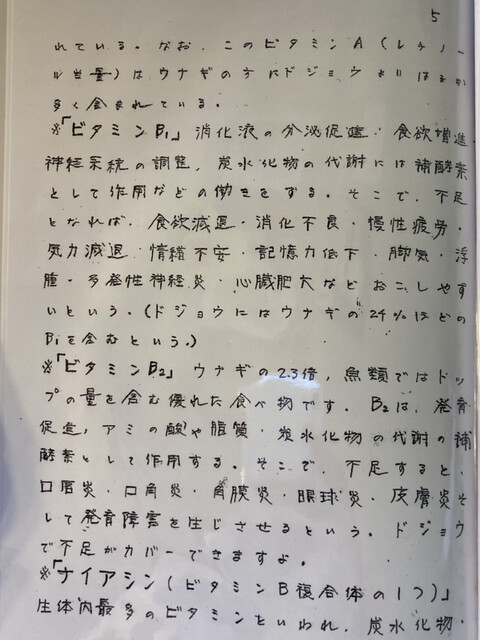 5
れている。なお、このビタミンA(レチノー
ル当量)はウナギの方にドジョウよりはるか
多く含まれている。
※「ビタミンB₁」消化液の分泌促進・食欲増進
神経系統の調整、炭水化物の代謝には補酵素
として作用などの働きをする。そこで、不足
となれば、食欲減退・消化不良・慢性疲労・
気力減退・情緒不安・記憶力低下・脚気・浮
腫・多発性神経炎・心臓肥大などおこしやす
いという。(ドジョウにはウナギの24%ほどの
B₁を含むという。)
※「ビタミンB₂」ウナギの2.3倍,魚類ではトッ
プの量を含む優れた食べ物です。B₂は、発育
促進,アミの酸や脂質・炭水化物の代謝の補
酵素として作用する。そこで、不足すると、
口唇炎・口角炎・角膜炎・眼球炎・皮膚炎そ
して発育障害を生じさせるという。ドジョウ
で不足がカバーできますよ。
※「ナイアシン(ビタミンB複合体の1つ)」
生体内最多のビタミンといわれ、炭水化物・